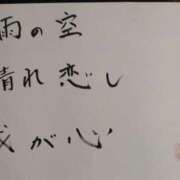 雨の空
晴れ恋し
我が心